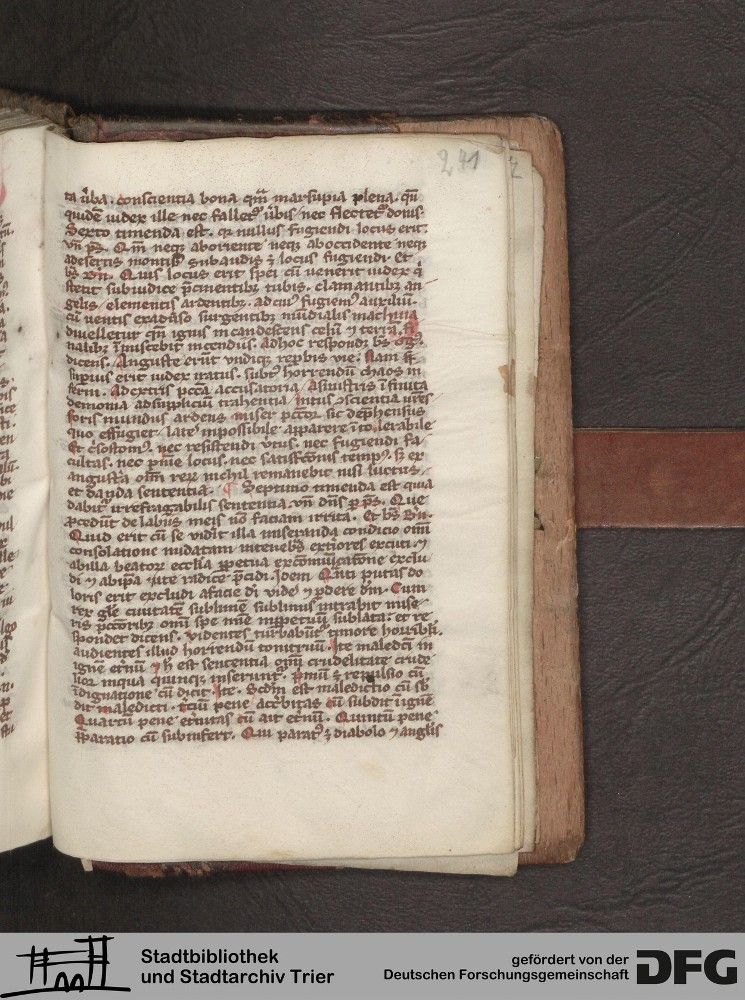 241
ta v̄ba. conscientia bona qm̄ marsupia plena. qn̄
quidē iudex ille nec falletᷣ v̄bis nec flectetᷣ donis.
Sexto timenda est. qꝛ nullus fugiendi locus erit.
vn̄ ps. Qm̄ neqꝫ aboriente neqꝫ aboccidente neqꝫ
adesertis montibꝫ subaudis locus fugiendi. Et
bs Quis locus erit spei cū venerit iudex
stetit subiudice p̄cinentibꝫ tubis. clamantibꝫ an
gelis elementis ardentibꝫ. ad cuiꝰ fugiemꝰ auxiliū.
cū ventis exadūso surgentibꝫ mūdialis machina
diuelletur qn̄ ignis incandescens celū ⁊ terrā
nalibꝫ īmiscebit incendiis. Adhoc respondꝫ bs
dicens. Anguste erūt vndiqꝫ reprobis vie. Nam
supius erit iudex iratus. subtꝰ horrendū chaos in
ferni. Adextris pcc̄a accusatoria Asinistris īfinita
demonia adsuppliciū trahentia Intus ɔscientia urēs
foris mundus ardens miser pctor sic dephensus
quo effugiet. late impossibile apparere ītolerabile
Et cisostomꝰ. nec resistendi vtus. nec fugiendi fa
cultas. nec pn̄ie locus. nec satisfc̄onis tempꝰ. sꝫ ex
angustia oīm reꝝ nichil remanebit nisi luctus.
et danda sententia. ¶ Septimo timenda est qua
dabit irrefragabilis sententia. vn̄ dn̄s ꝑ ps. Que
ꝓcedūt de labiis meis nō faciam irrita. Et bs
Quid erit cū se vidit illa miseranda condicio oīm
consolatione nudatam exteriores excuti ⁊
abilla beatoꝝ ecclīa ꝑpetua excōmūicatione exclu
di ⁊ abipa vite radice p̄cidi. Idem Quāti putas do
loris erit excludi afacie dī vide ⁊ ꝑdere dn̄m. Cum
rex glē ciuitatē sublimē sublimis intrabit mise
ris pctoribꝫ omī spe sublata. et re
spondet dicens. videntes turbabūt timore horribli.
audientes illud horrendū tonitruū. Ite maledc̄i in
ignē et̄nū ⁊ h̄ est sententia oīm crudelitate crude
lior inqua quinqꝫ inserunt. Pͥmū ē repulsio cū
īdignatione cū dicit Ite. Scdm̄ est maledictio cū sb
dit maledicti. tciū pene acerbitas cū subdit ignē
Quartū pene et̄nitas cū ait et̄nū. Quintū pene
p̄paratio cū subinfert. Qui paratꝰ ē diabolo ⁊ anglis
Stadtbibliothek
und Stadtarchiv Trier
gefördert von der
Deutschen Forschungsgemeinschaft
DFG